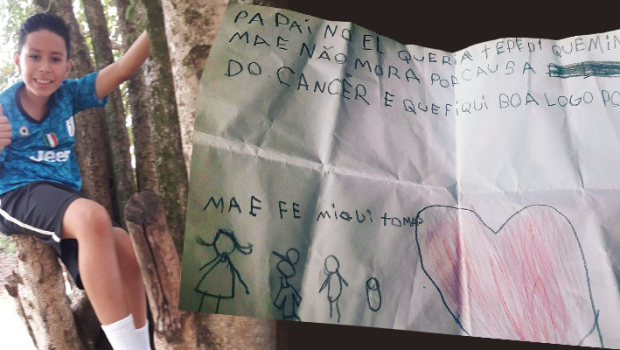 PAPAI NOEL QUERIA TEPEDI QUEMIN
MAE NÃO MORA PORCAUSA
DO CANCÊR E QUE FIQUI BOA LOGO PO
MAE FE miqui
Jeep